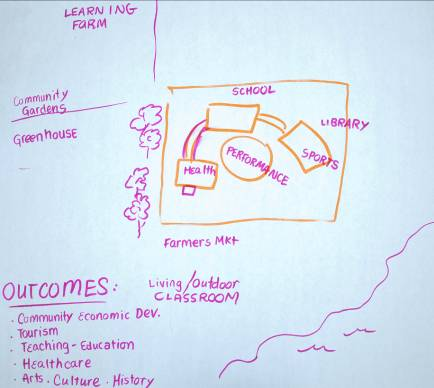 LEARNING
FARM
Community
Gardens
Greenhouse
SCHOOL
LIBRARY
SPORTS
PERFORMANCE
Health
Farmers Mkt
Living/Outdoor
CLASSROOM
OUTCOMES:
· Community Economic Dev.
· Tourism
· Teaching-Education
· Healthcare
· Arts. Culture. History